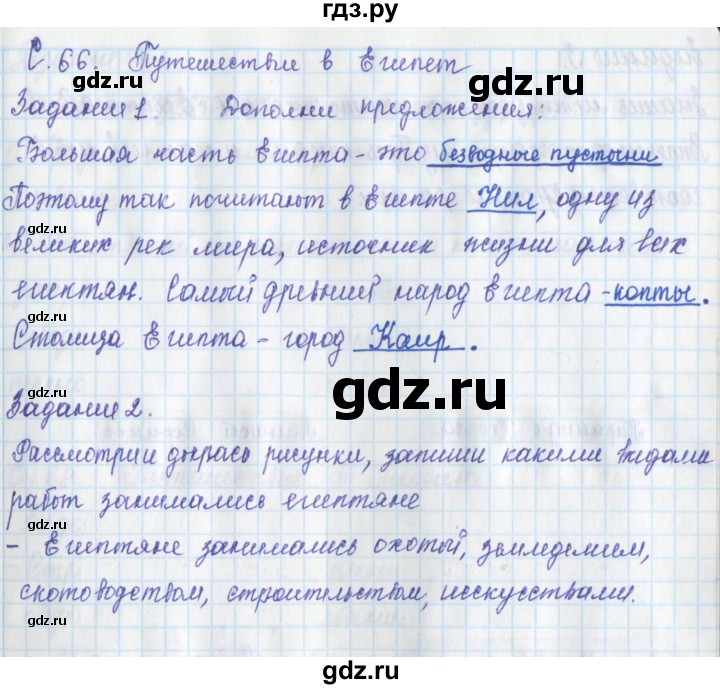 гдз.ру
С. 66. Путешествие в Египет
gdz.ru
gdz.ru
Задание 1. Дополни предложения:
Большая часть Египта - это безводные пустыни
gdz.ru
Поэтому так почитают в Египте Нил, одну из
великих рек мира, источник жизни для всех
gdz.ru
египтян. Самый древний народ Египта - копты.
gdz.ru
Столица Египта - город Каир.
gdz.ru
gdz.ru
Задание 2.
Рассмотри и докрась рисунки, запиши какими видами
gdz.ru
работ занимались египтяне
gdz.ru
- Египтяне занимались охотой, земледелием,
скотоводством, строительством, исскусствами.
gdz.ru
gdz.ru
gdz.ru